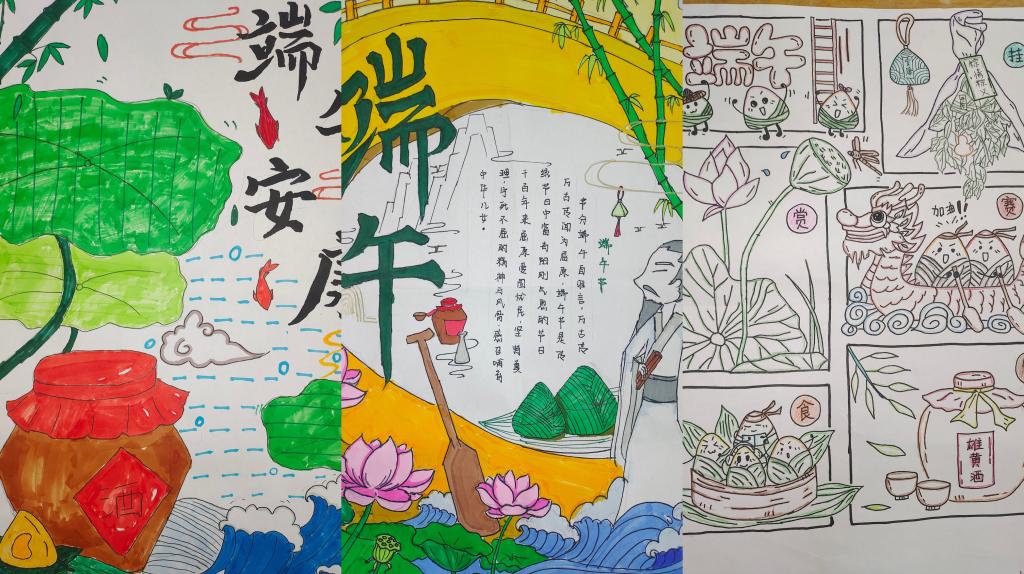 端
安
酒
端午
端午节
节分端午自谁言,万古
万古传闻为屈原,端午节是传
统节日中富有阳刚气息的节日
千百年来屈原爱国忧民,坚持真
理,宁死不屈的精神与风骨感召哺育
中华儿女。
端午
挂
赏
加油!!
赛
食
雄黄酒